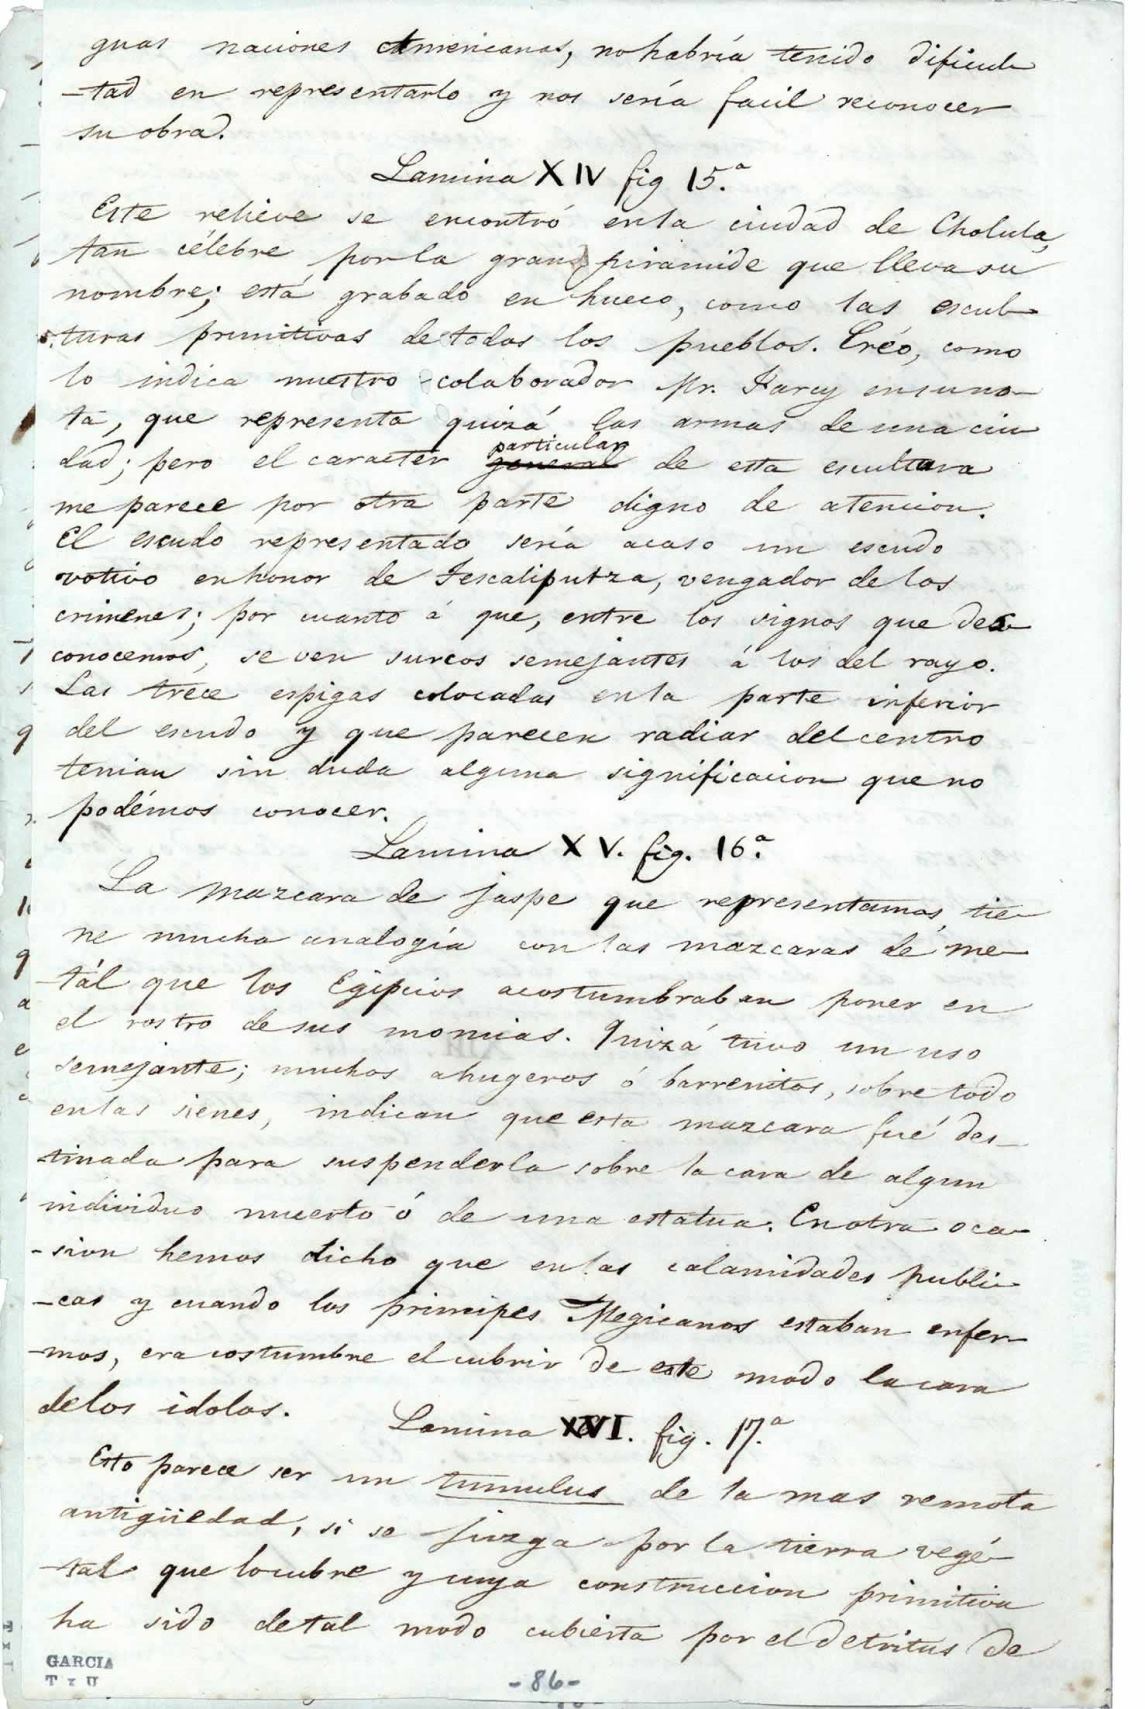 guas naciones Americanas, no habría tenido dificul
-tad en representarlo y nos sería facil reconocer
su obra.
Lamina XIV fig 15.ª
Este relieve se encontró en la ciudad de Cholula,
tan célebre por la gran piramide que lleva su
nombre; está grabado en hueco, como las escul-
turas primitivas de todos los pueblos. Créo, como
lo indica nuestro colaborador Mr. Farcy en su no-
ta, que representa quizá las armas de una ciu
dad; pero el caracter particular general de esta escultura
me parece por otra parte digno de atencion.
El escudo representado sería acaso un escudo
votivo en honor de Tescaliputza, vengador de los
crimenes; por cuanto á que, entre los signos que des-
conocemos, se ven surcos semejantes á los del rayo.
Las trece espigas colocadas en la parte inferior
del escudo y que parecen radiar del centro
tenian sin duda alguna significacion que no
podémos conocer.
Lamina XV. fig. 16.ª
La mazcara de jaspe que representamos, tie-
ne mucha analogía con las mazcaras de me-
tál que los Egipcios acostumbraban poner en
el rostro de sus momias. Quizá tuvo un uso
semejante; muchos ahugeros ó barrenitos, sobre todo
en las sienes, indican que esta mazcara fué des-
tinada para suspenderla sobre la cara de algun
individuo muerto ó de una estatua. En otra oca-
-sion hemos dicho que en las calamidades publi-
-cas y cuando los principes Megicanos estaban enfer-
-mos, era costumbre el cubrir de este modo la cara
de los idolos.
Lamina XVI. fig. 17.ª
Esto parece ser un tumulus de la mas remota
antigüedad, si se juzga por la tierra vegé-
-tal que lo cubre y cuya construccion primitiva
ha sido de tal modo cubierta por el detritus de
GARCIA
T Y U
-86-